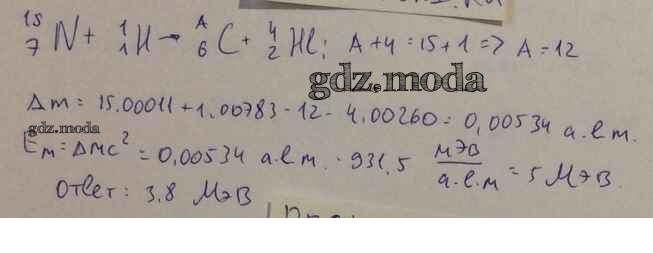 ¹⁵₇N + ¹₁H → ᴬ₆C + ⁴₂He; A+4=15+1 => A=12
gdz.moda
Δm = 15.00011+1.00783-12-4.00260=0,00534 а.е.м.
gdz.moda
Eм=Δmc²=0,00534 а.е.м. · 931,5 МэВ/а.е.м = 5 МэВ.
Ответ: 3.8 МэВ